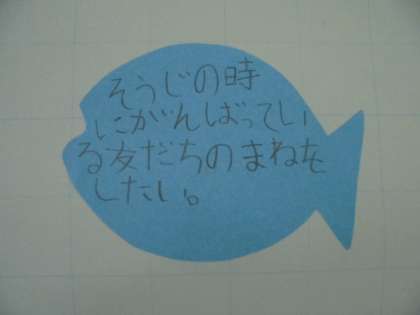 そうじの時
にがんばってい
る友だちのまねを
したい。